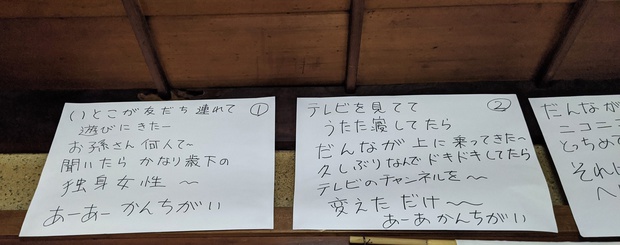 ①
いとこが友だち連れて
遊びにきたー
お孫さん何人〜
聞いたら かなり歳下の
独身女性 〜
あーあー かんちがい
②
テレビを見てて
うたた寝してたら
だんなが上に乗ってきた〜
久しぶりなんでドキドキしてたら
テレビのチャンネルを〜
変えた だけ〜〜
あーあ かんちがい
だんなが
ニコニコ
とちめて
それ